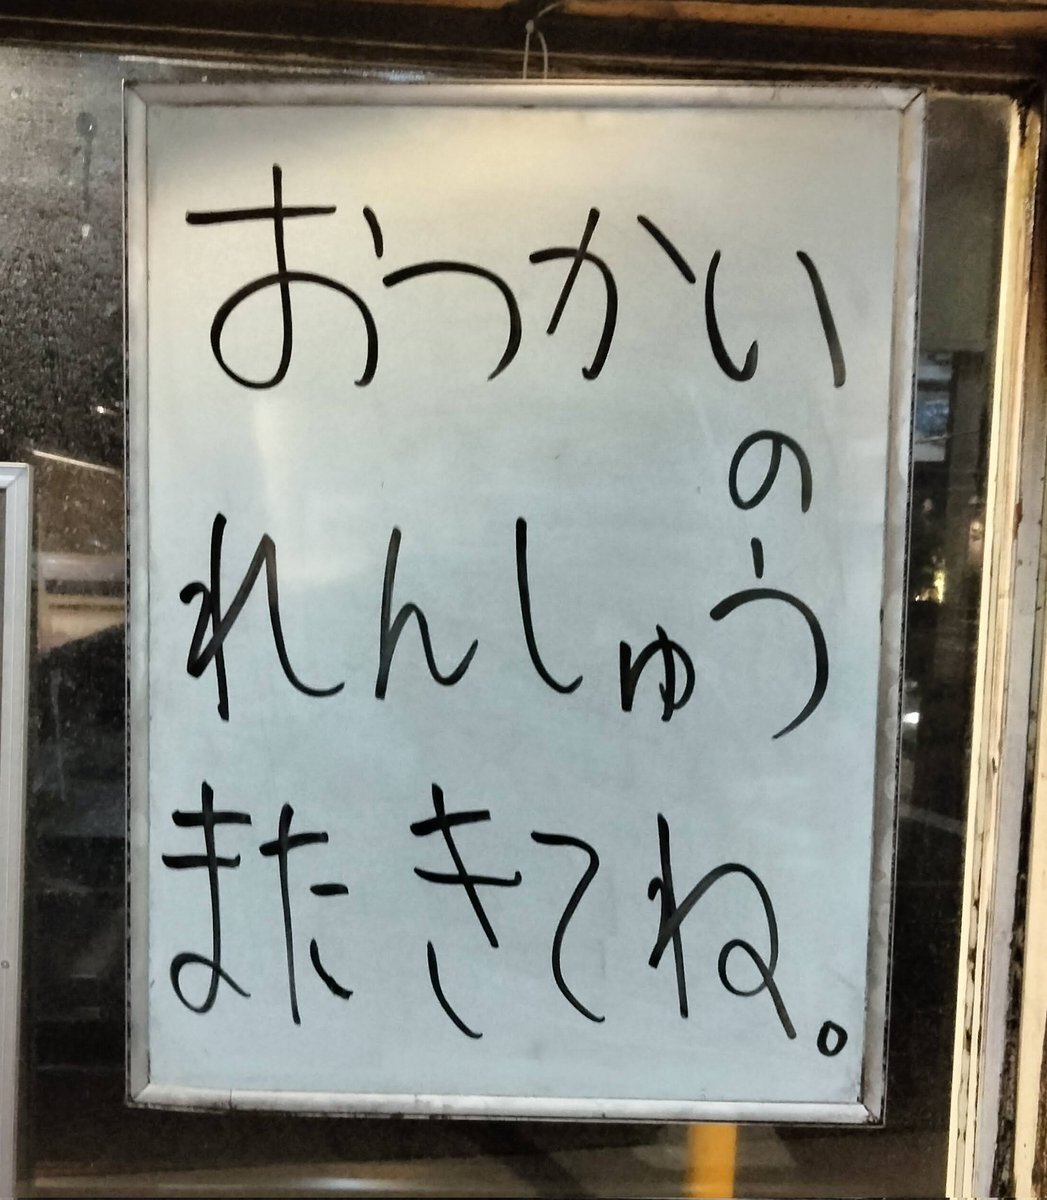 おつかい
の
れんしゅう
またきてね。